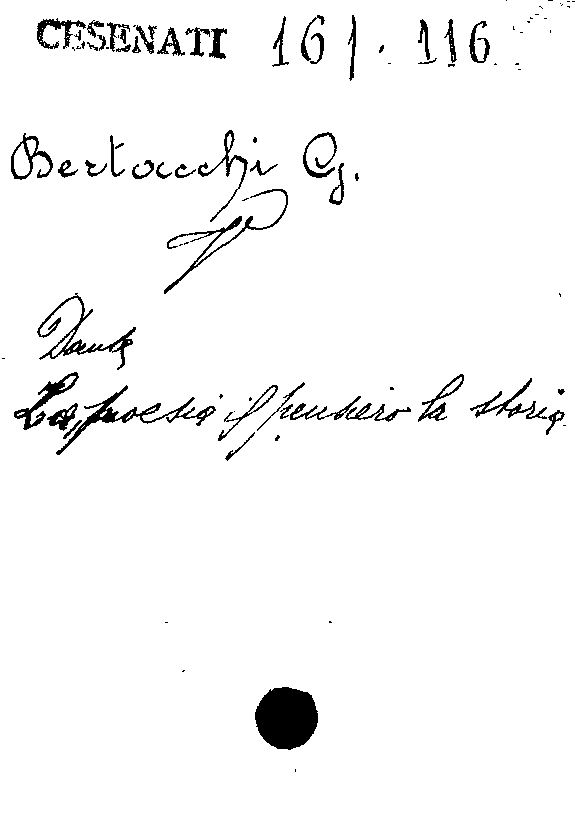 CESENATI 161. 116
Bertacchi G.
Dante
La poesia il pensiero la storia